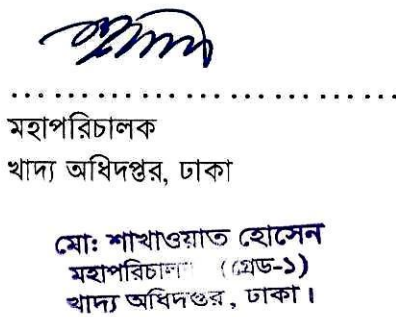 ........................................
মহাপরিচালক
খাদ্য অধিদপ্তর, ঢাকা
মো: শাখাওয়াত হোসেন
মহাপরিচাল (গ্রেড-১)
খাদ্য অধিদপ্তর, ঢাকা।